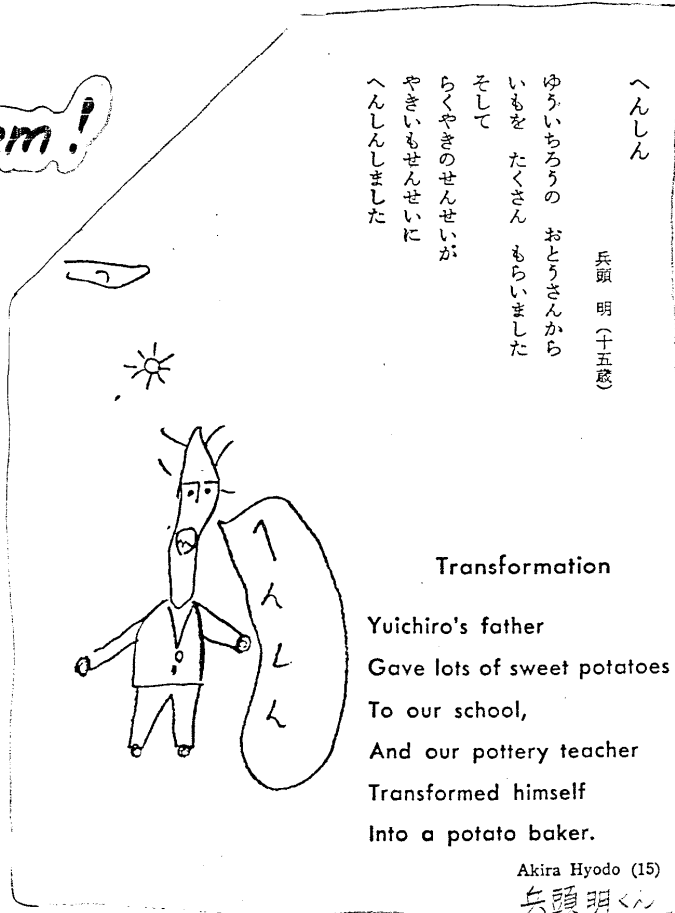 em!
へんしん
兵頭 明(十五歳)
ゆういちろうの おとうさんから
いもを たくさん もらいました
そして
らくやきのせんせいが
やきいもせんせいに
へんしんしました
へんしん
Transformation
Yuichiro's father
Gave lots of sweet potatoes
To our school,
And our pottery teacher
Transformed himself
Into a potato baker.
Akira Hyodo (15)
兵頭明くん